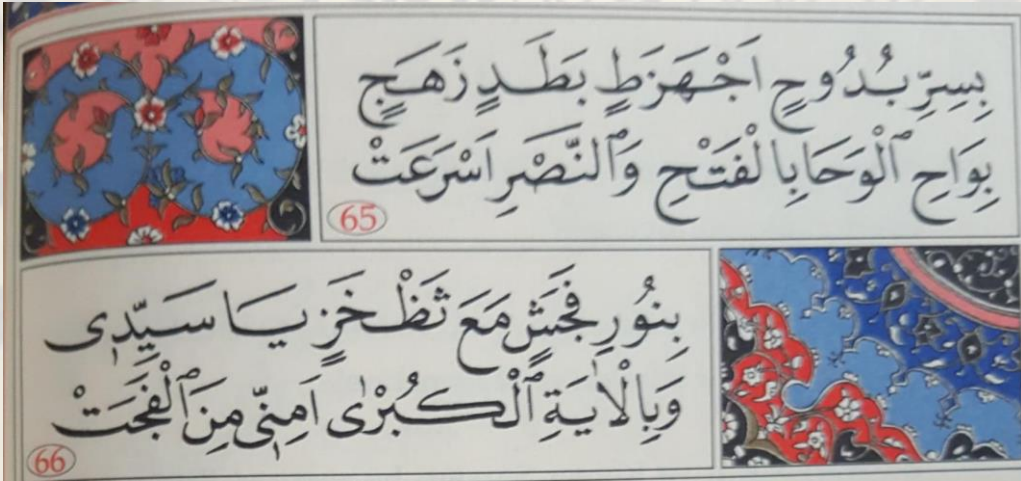 بِسِرِّ بُدُوحٍ اَجْهَزَطٍ بَطَدٍ زَهَجٍ
بِوَاحِ ٱلْوَحَابِالْفَتْحِ وَٱلنَّصْرِ اَسْرَعَتْ
65
بِنُورِ فَجَشٍ مَعَ ثَظْخَزٍ يَا سَيِّدِى
وَبِالْاٰيَةِ ٱلْكُبْرٰى اَمِنِّى مِنَ ٱلْفَجَتْ
66